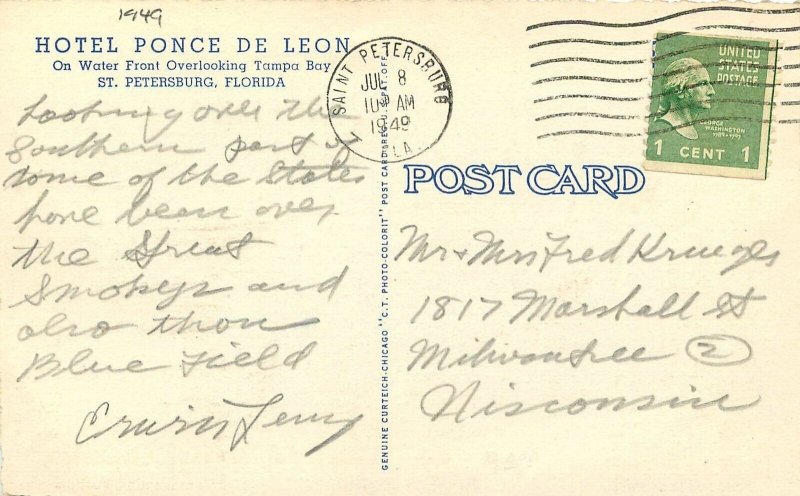 1949
HOTEL PONCE DE LEON
On Water Front Overlooking Tampa Bay
ST. PETERSBURG, FLORIDA
Looking over the
Southern part of
some of the States
have been over
the Great
Smokeys and
also thou
Blue Field
Erwin
GENUINE CURTEICH-CHICAGO "C.T. PHOTO-COLORIT" POST CARD (REG. U.S. PAT. OFF.
SAINT PETERSBURG
JUL 8
10 AM
1949
FLA.
1
UNITED
STATES
POSTAGE
GEORGE
WASHINGTON
1789-1797
1 CENT 1
POST CARD
Mr + Mrs Fred Krueger
1817 Marshall St
Milwaukee 2
Wisconsin